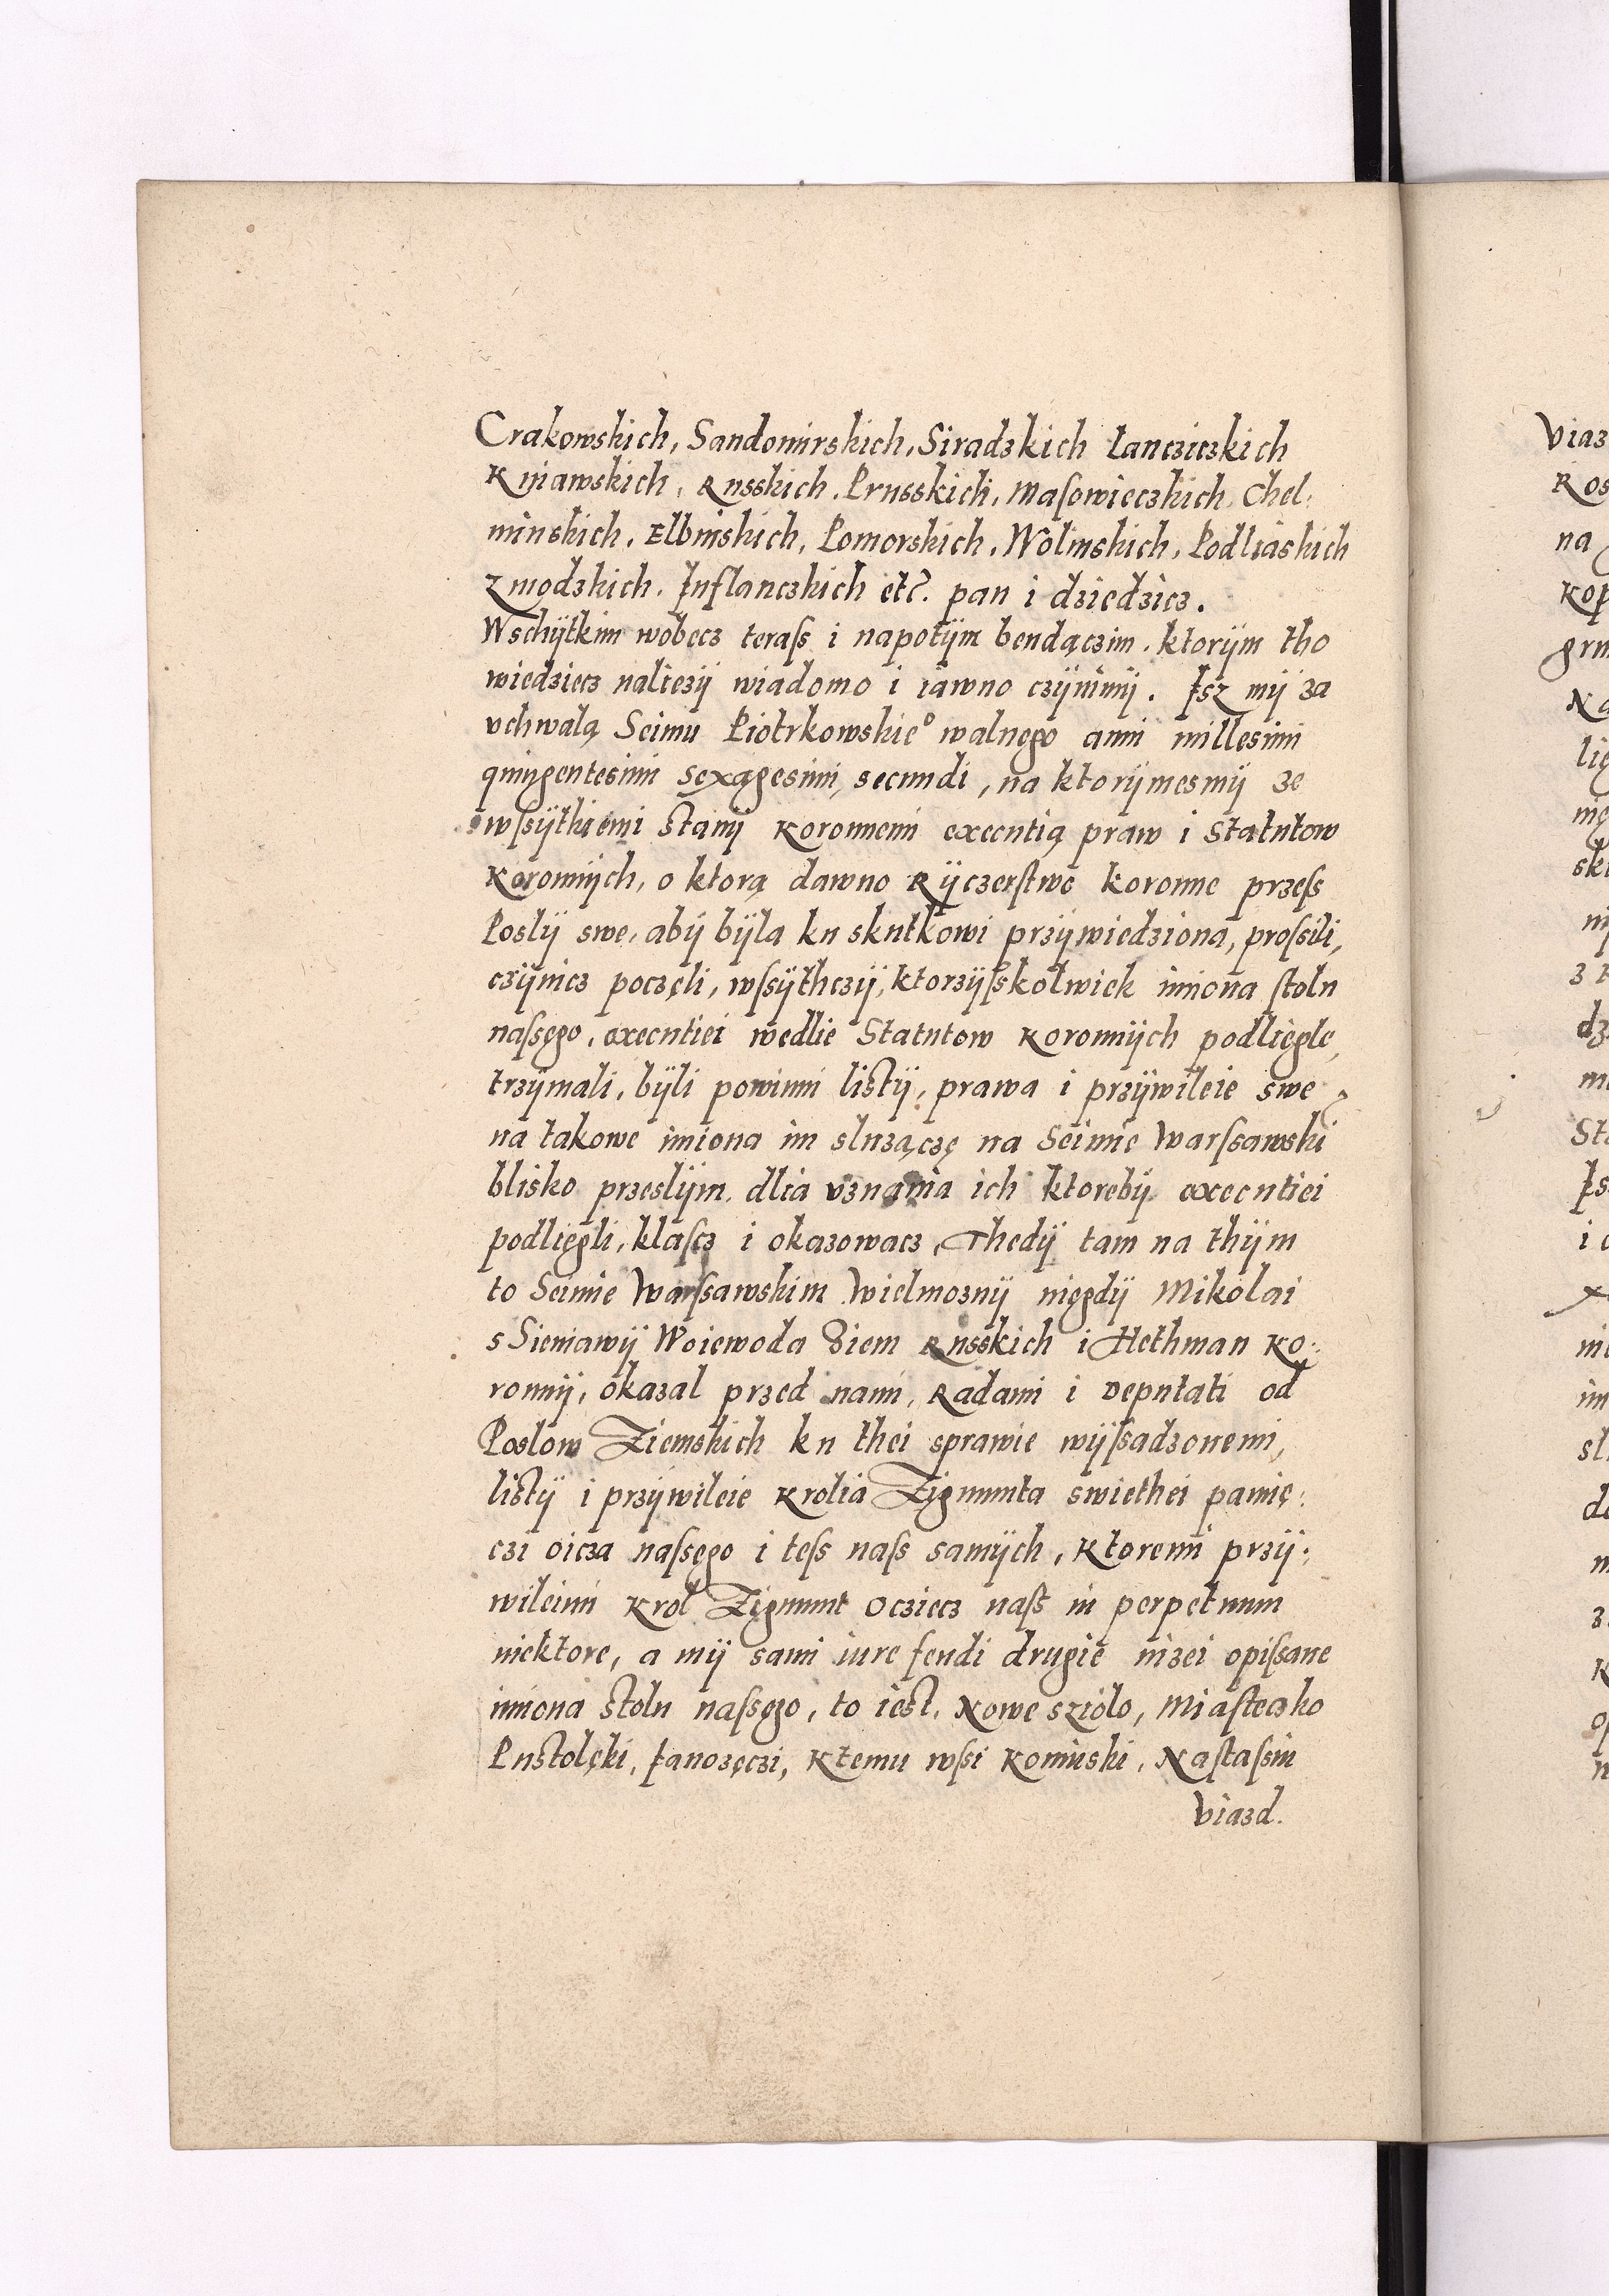 Crakowskich, Sandomirskich, Siradzkich Lancziczkich
Kuiawskich, Russkich, Prusskich, Masowieczkich, Chel:
minskich, Elbinskich, Pomorskich, Wolinskich, Podliaskich
Zmodzkich, Inflanczkich etc. pan i dziedzicz.
Wschÿtkim wobecz terass i napotÿm bendączim, ktorÿm tho
wiedziecz naliezÿ wiadomo i iawno czÿnimÿ. Isz mÿ za
vchwalą Seimu Piotrkowskieº walnego anni millesimi
quingentesimi sexagesimi, secundi, na ktorÿmesmÿ ze
wssÿtkiemi stanÿ koronnemi executią praw i Statutow
koronnÿch, o ktorą dawno Rÿczerstwo koronne przess
Poslÿ swe, abÿ bÿla ku skutkowi przÿwiedziona, prossili,
czÿnicz poczęli, wssÿthczÿ, ktorzÿsskolwiek imiona stolu
nassego, executiei wedlie Statutow koronnÿch podliegle,
trzÿmali, bÿli powinni listÿ, prawa i przÿwileie swe
na takowe imiona im sluzączę na Seimie Warssawski
blisko przeslÿm, dlia vznania ich ktorebÿ executiei
podliegli, klascz i okazowacz, Thedÿ tam na thÿm
to Seimie Warssawskim Wielmoznÿ niegdÿ Mikolai
s Sieniawÿ Woiewoda Ziem Russkich i Hethman ko:
ronnÿ, okazal przed nami, Radami i deputati od
Poslow Ziemskich ku thei sprawie wÿssadzonemi,
listÿ i przÿwileie krolia Zigmunta swiethei pamię:
czi oicza nassego i tess nass samÿch, ktoremi przÿ:
wileimi krol Zigmunt ocziecz nass in perpetuum
niektore, a mÿ sami iure feudi drugie nizei opissane
imiona stolu nassego, to iest, Nowe sziolo, Miasteczko
Pustolęki, Ianozęczi, ktemu wssi koninski, Nastassin
Viazd.